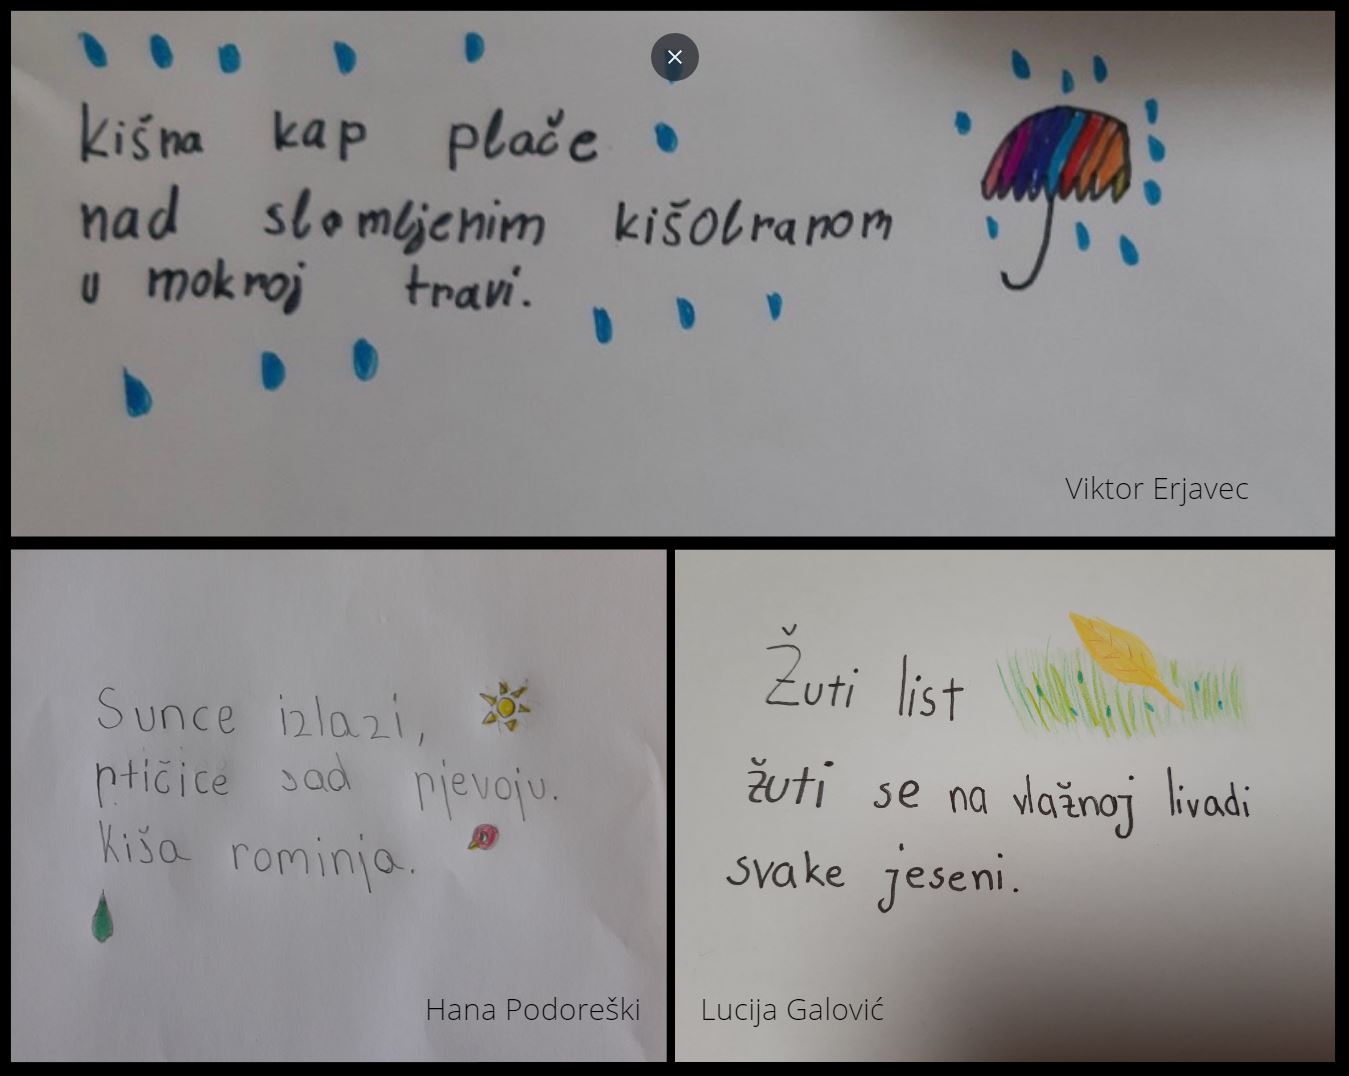 kišna kap plače
nad slomljenim kišobranom
u mokroj travi.
Viktor Erjavec
Sunce izlazi,
ptičice sad pjevaju.
Kiša rominja.
Hana Podoreški
Žuti list
žuti se na vlažnoj livadi
svake jeseni.
Lucija Galović